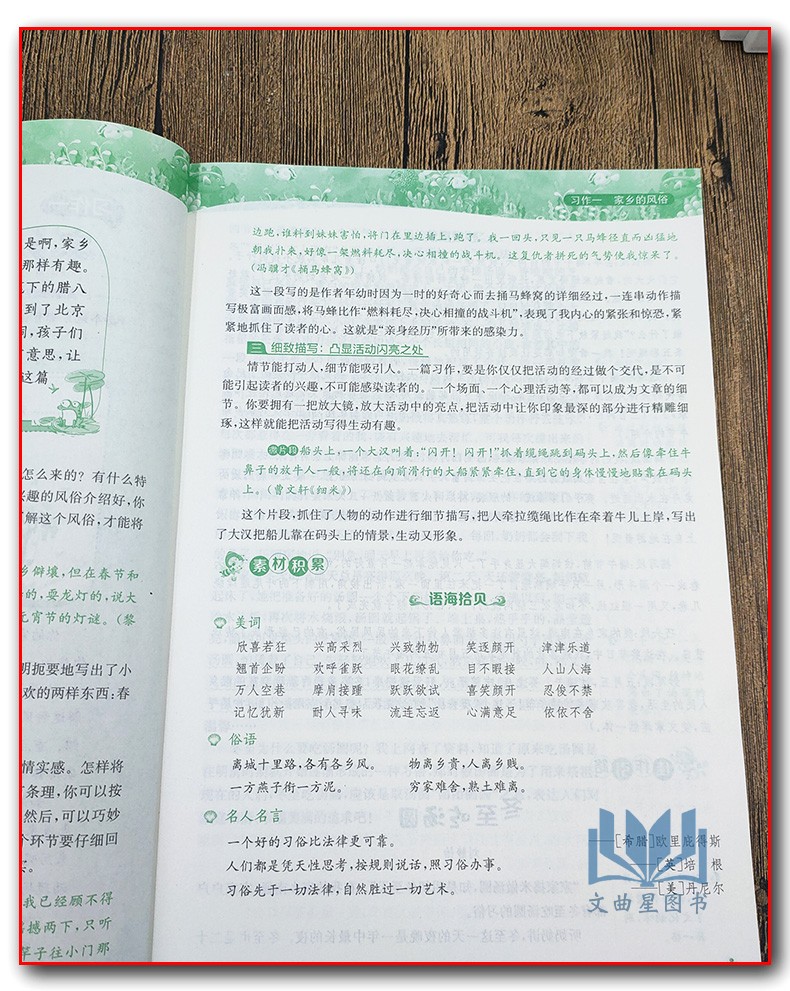 是啊，家乡
那样有趣。
下的腊八
到了北京
，孩子们
意思，让
这篇
怎么来的？有什么特
趣的风俗介绍好，你
解这个风俗，才能将
乡僻壤，但在春节和
的，耍龙灯的，说大
元宵节的灯谜。（黎
明扼要地写出了小
欢的两样东西：春
情实感。怎样将
条理，你可以按
然后，可以巧妙
个环节要仔细回
我已经顾不得
撼两下，只听
竿子往小门那
习作一 家乡的风俗
边跑，谁料到妹妹害怕，将门在里边插上，跑了。我一回头，只见一只马蜂径直而凶猛地
朝我扑来，好像一架燃料耗尽、决心相撞的战斗机。这复仇者拼死的气势使我惊呆了。
（冯骥才《捅马蜂窝》）
这一段写的是作者年幼时因为一时的好奇心而去捅马蜂窝的详细经过，一连串动作描
写极富画面感，将马蜂比作“燃料耗尽，决心相撞的战斗机”，表现了我内心的紧张和惊恐，紧
紧地抓住了读者的心。这就是“亲身经历”所带来的感染力。
三 细致描写：凸显活动闪亮之处
情节能打动人，细节能吸引人。一篇习作，要是你仅仅把活动的经过做个交代，是不可
能引起读者的兴趣，不可能感染读者的。一个场面、一个心理活动等，都可以成为文章的细
节。你要拥有一把放大镜，放大活动中的亮点，把活动中让你印象最深的部分进行精雕细
琢，这样就能把活动写得生动有趣。
微片段 船头上，一个大汉叫着：“闪开！闪开！”抓着缆绳跳到码头上，然后像牵住牛
鼻子的放牛人一般，将还在向前滑行的大船紧紧牵住，直到它的身体慢慢地贴靠在码头
上。（曹文轩《细米》）
这个片段，抓住了人物的动作进行细节描写，把人牵拉缆绳比作在牵着牛儿上岸，写出
了大汉把船儿靠在码头上的情景，生动又形象。
素材积累
语海拾贝
美词
欣喜若狂 兴高采烈 兴致勃勃 笑逐颜开 津津乐道
翘首企盼 欢呼雀跃 眼花缭乱 目不暇接 人山人海
万人空巷 摩肩接踵 跃跃欲试 喜笑颜开 忍俊不禁
记忆犹新 耐人寻味 流连忘返 心满意足 依依不舍
俗语
离城十里路，各有各乡风。 物离乡贵，人离乡贱。
一方燕子衔一方泥。 穷家难舍，熟土难离。
名人名言
一个好的习俗比法律更可靠。 ——[希腊]欧里庇得斯
人们都是凭天性思考，按规则说话，照习俗办事。 ——[英]培 根
习俗先于一切法律，自然胜过一切艺术。 ——[美]丹尼尔
文曲星图书